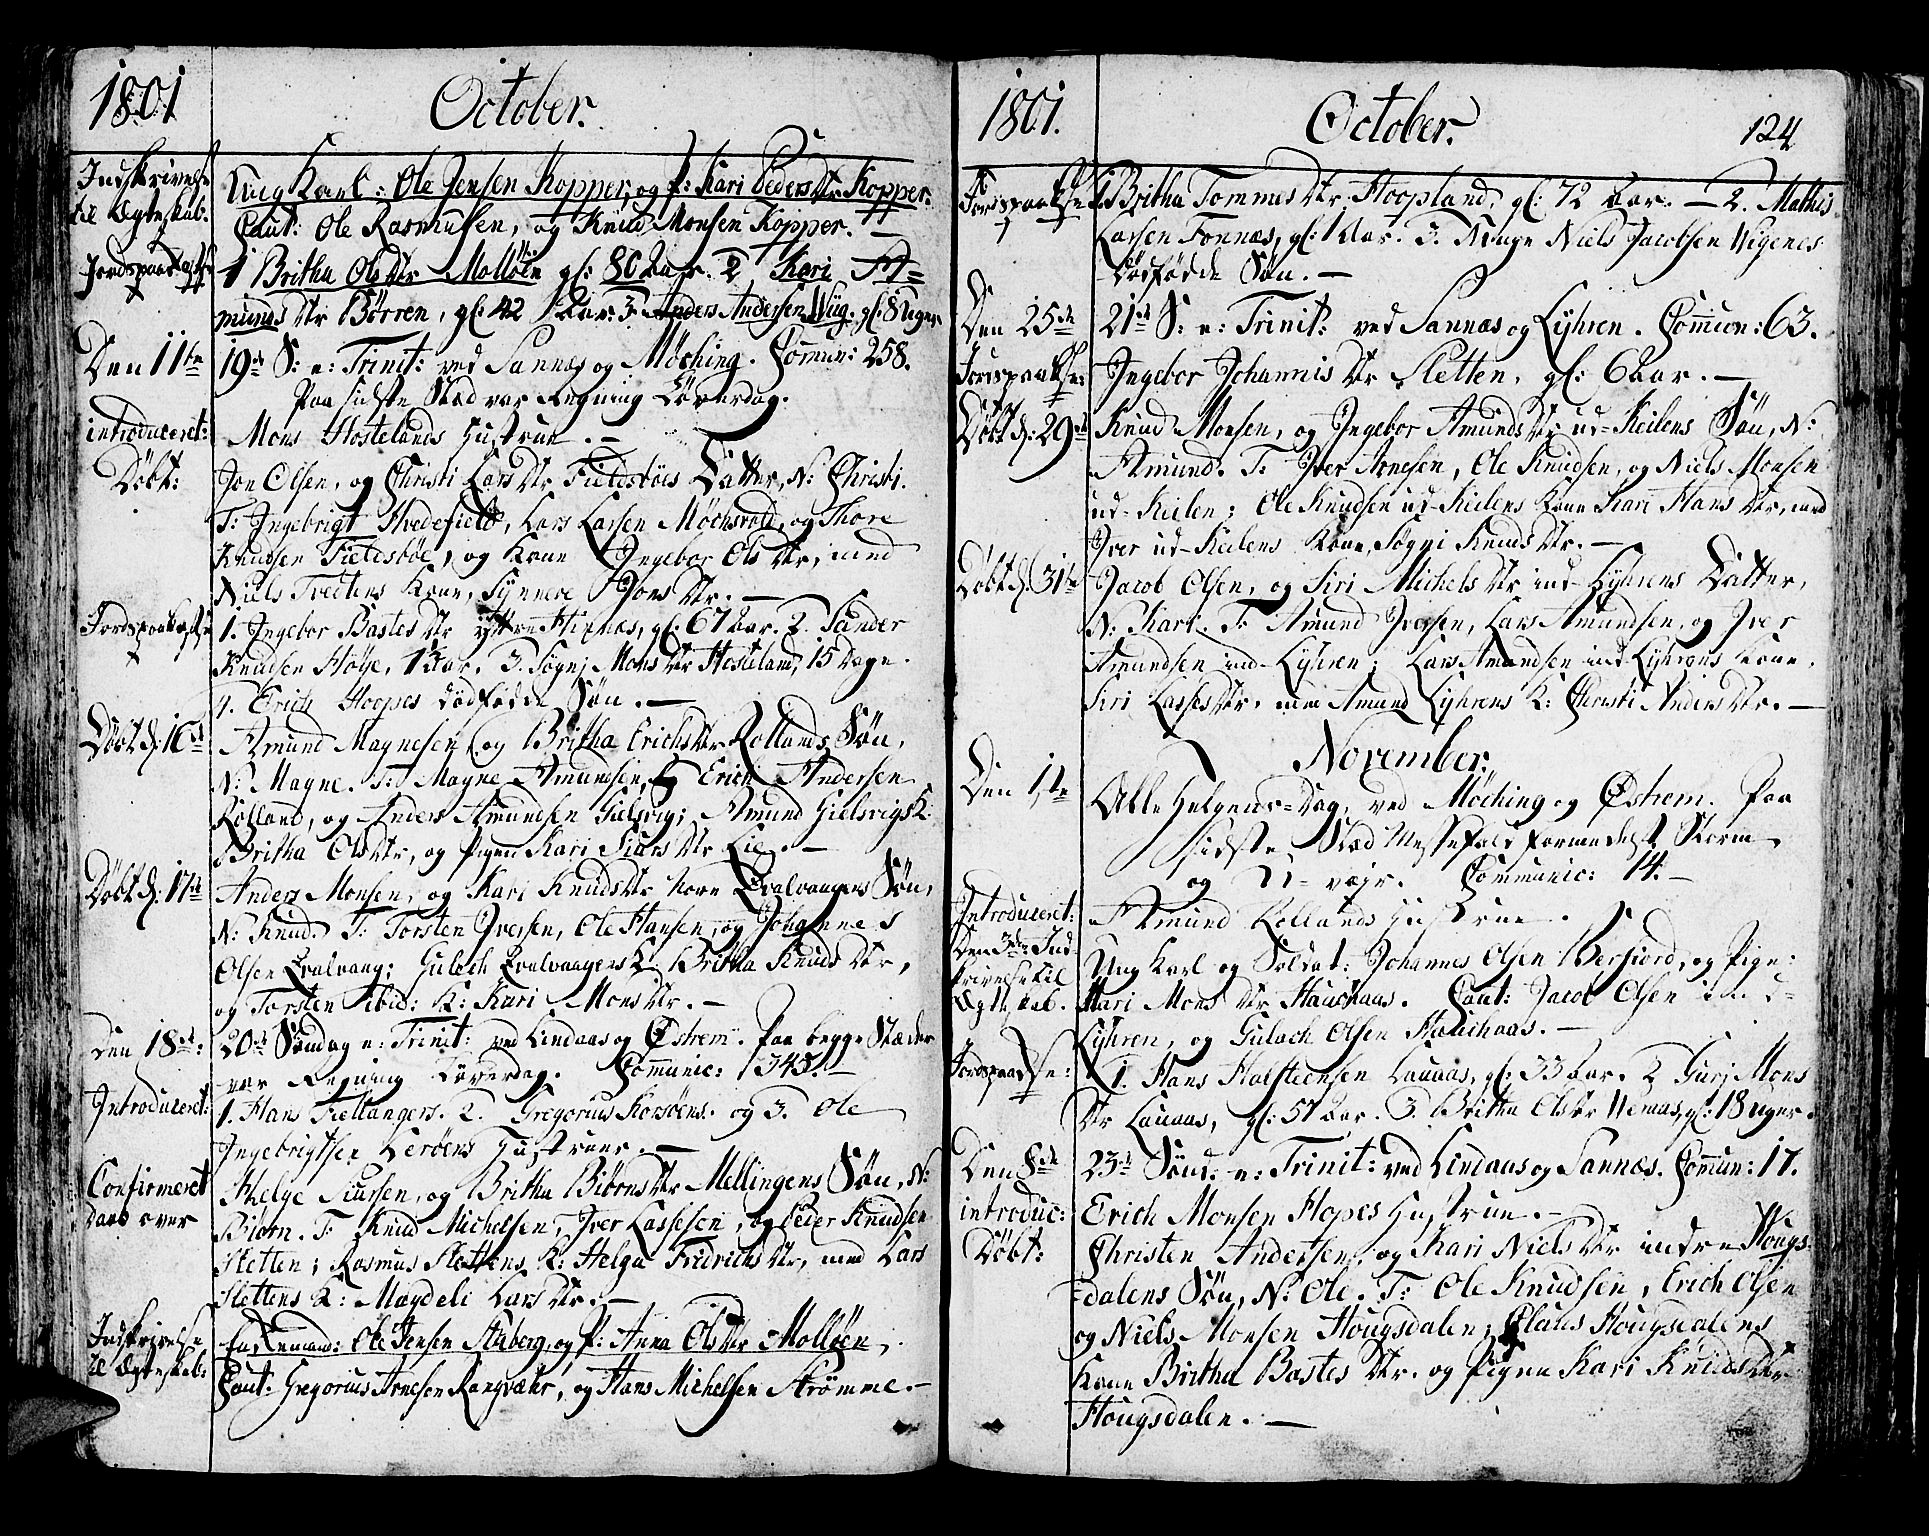 1801 October.
Indskrivelse Ung Karl: Ole Jensen Kopper, og P: Kari Peders Dtr Kopper.
til Ægteskab: Caut: Ole Rasmusen, og Knud Monsen Kopper. —
Jordspaakastelse 1 Britha Ols Dtr Molløen gl: 80 Aar. 2 Kari A=
munds Dtr Börren, gl: 42 Aar. 3. Anders Andersen Wiig. gl: 8 Uger
Den 11te 19de S: e: Trinit: ved Sannæs og Möching. Commun: 258.
Paa sidste Stæd var Regning Löverdag.
introduceret: Mons Hostelands Hustrue. —
Döbt: Jon Olsen, og Christi Lars Dtr Fieldsböes Datter, N: Christi.
T: Ingebrigt Hvedefield, Lars Larsen Möchsvold, og Thore
Knudsen Fieldsböe, og Kone Ingebor Ols Dtr, med
Niels Tvedtens Kone, Synneve Jons Dtr. —
Jordspaakastelse 1. Ingebor Bastes Dtr yttre Hipnæs, gl: 67 Aar. 2. Sander
Knudsen Höye, 1 Aar. 3. Sögni Mons Dtr Hosteland, 15 Dage.
4. Erich Hoopes dödfödde Sön. —
Döbt d: 16de Amund Magnesen og Britha Erichs Dtr Rollands Sön,
N: Magne. T: Magne Amundsen, og Erich Andersen
Rolland, og Anders Amundsen Gielsvig; Amund Gielsvigs K:
Britha Ols Dtr, og Pigen Kari Siurs Dtr Lie. —
Döbt d: 17de Anders Monsen, og Kari Knuds Dtr Qvalvaagens Sön,
N: Knud. T: Torsten Iversen, Ole Hansen, og Johannes
Olsen Qvalvaag; Gulach Qvalvaagens K: Britha Knuds Dtr,
og Torsten ibid: K: Kari Mons Dtr. —
Den 18de: 20de Söndag e: Trinit: ved Lindaas og Östrem. Paa begge Stæder
var Regning Löverdag. Communic: 343. —
Introduceret: 1. Hans Fiellangers. 2. Gregorius Korsöens. og 3. Ole
Ingebrigtsen Leröens Hustruer. —
Confirmeret Helge Siursen, og Britha Biörns Dtr Mellingens Sön, N:
Daab over Biörn. T: Knud Michelsen, Iver Lassesen, og Peder Knudsen
Sletten; Rasmus Slettens K: Helga Fredrichs Dtr, med Lars
Slettens K: Magdeli Lars Dtr. —
Indskrivelse Enkemand: Ole Jensen Staberg, og P: Anna Ols Dtr Molløen,
til Ægteskab: Caut: Gregorius Arnesen Rangvæhr, og Hans Michelsen Strömme. —
1801. October. 124
Jordspaakastelse 1. Britha Tommes Dtr Hoopland, gl: 72 Aar. — 2. Mathis
Larsen Fonnæs, gl: 1 Aar. 3. Niels Jacobsen Wigenes
dödfödde Sön. —
Den 25de 21de S: e: Trinit: ved Sannæs og Lyhren. Commun: 63.
Jordspaakastelse: Ingebor Johannis Dtr Sletten, gl: 6 Aar. —
Döbt d: 29de Knud Monsen, og Ingebor Amunds Dtr ud-Keilens Sön, N:
Amund. T: Iver Arnesen, Ole Knudsen, og Niels Monsen
ud-Keilen; Ole Knudsen ud-Keilens Kone Kari Hans Dtr, med
Iver ud-Keilens Kone, Sögni Knuds Dtr. —
Döbt d: 31te Jacob Olsen, og Siri Michels Dtr ind-Lyhrens Datter,
N: Kari. T: Amund Iversen, Lars Amundsen, og Iver
Amundsen ind-Lyhren; Lars Amundsen ind-Lyhrens Kone,
Siri Lasses Dtr, med Amund Lyhrens K: Christi Anders Dtr. —
November.
Den 1ste Alle Helgens-Dag, ved Möching og Östrem. Paa
sidste Stæd Messefald formedelst Storm
og U-vejr. Communic: 14. —
Introduceret: Amund Rollands Hustrue.
Den 3die Ind- Ung Karl og Soldat: Johannes Olsen Berfiord, og Pige:
skrivelse til Mari Mons Dtr Hauchaas. Caut: Jacob Olsen ind-
Ægteskab. Lyhren, og Gulach Olsen Hauchaas. —
Jordspaakastelse: 1. Hans Halsteensen Lauaas, gl: 33 Aar. 2 Guri Mons
Dtr Lauaas, gl: 57 Aar. 3. Britha Ols Dtr Nemas, gl: 18 Uger.
Den 8de 23de Sönd. e: Trinit: ved Lindaas og Sannæs. Commun: 17.
introduc: Erich Monsen Hopes Hustrue. —
Döbt: Christen Andersen, og Kari Niels Dtr indre Hougs-
dalens Sön, N: Ole. T: Ole Knudsen, Erich Olsen
og Niels Monsen Hougsdalen; Claus Hougsdalens
Kone Britha Bastes Dtr. og Pigen Kari Knuds Dtr
Hougsdalen. —